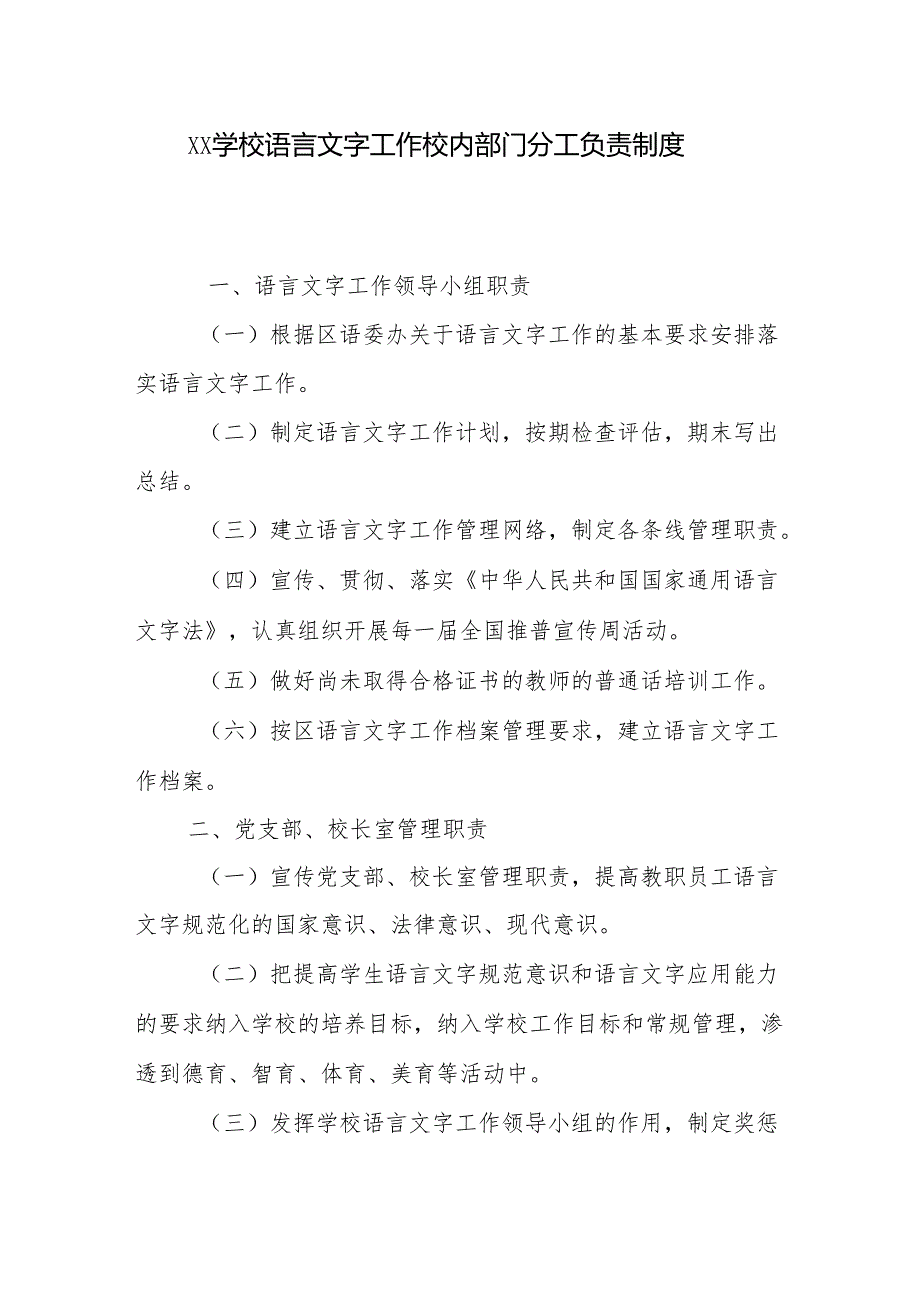 XX学校语言文字工作校内部门分工负责制度
一、语言文字工作领导小组职责
（一）根据区语委办关于语言文字工作的基本要求安排落
实语言文字工作。
（二）制定语言文字工作计划，按期检查评估，期末写出
总结。
（三）建立语言文字工作管理网络，制定各条线管理职责。
（四）宣传、贯彻、落实《中华人民共和国国家通用语言
文字法》，认真组织开展每一届全国推普宣传周活动。
（五）做好尚未取得合格证书的教师的普通话培训工作。
（六）按区语言文字工作档案管理要求，建立语言文字工
作档案。
二、党支部、校长室管理职责
（一）宣传党支部、校长室管理职责，提高教职员工语言
文字规范化的国家意识、法律意识、现代意识。
（二）把提高学生语言文字规范意识和语言文字应用能力
的要求纳入学校的培养目标，纳入学校工作目标和常规管理，渗
透到德育、智育、体育、美育等活动中。
（三）发挥学校语言文字工作领导小组的作用，制定奖惩